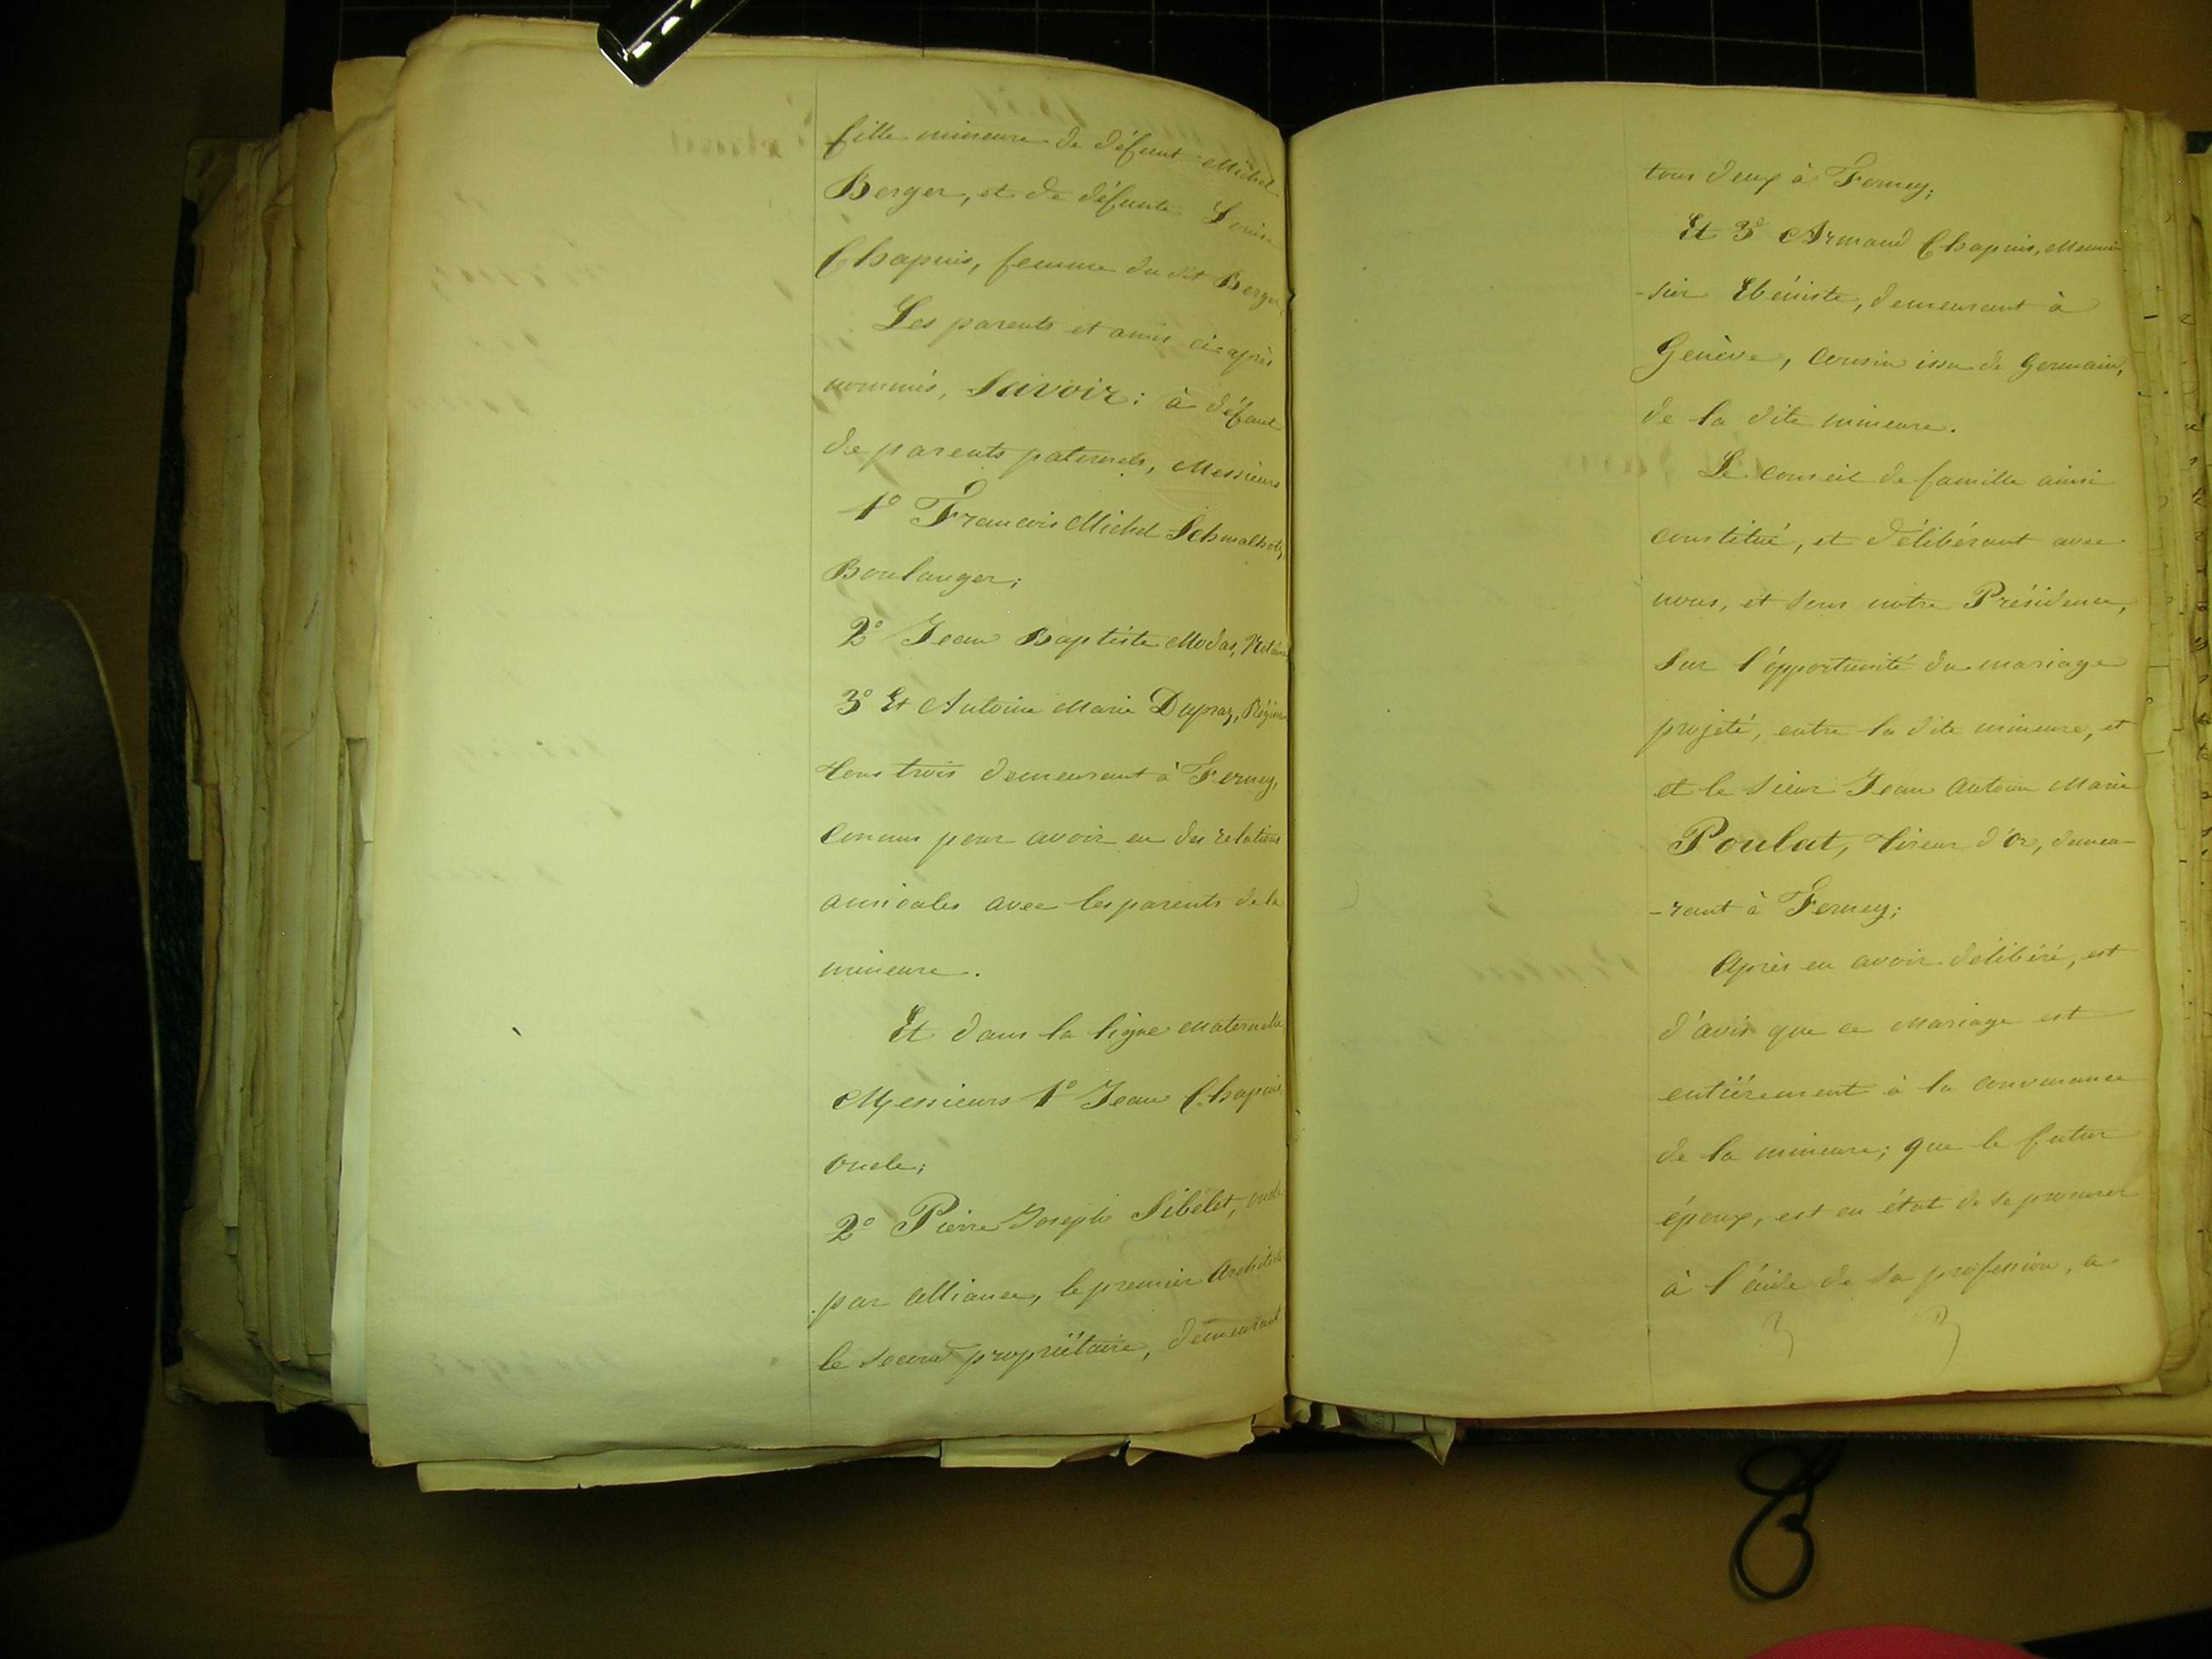 fille mineure de défunt Michel
Berger, et de défunte Louise
Chapuis, femme du dit Berger,
Les parents et amis ci-après
nommés, Savoir: à défaut
de parents paternels, Messieurs
1° Francois Michel Schmalholtz
Boulanger;
2° Jean Baptiste Modas,
3° Et Antoine Marie Dupraz,
tous trois demeurant à Ferney,
connus pour avoir eu des relations
amicales avec les parents de la
mineure.
Et dans la ligne maternelle
Messieurs 1° Jean Chapuis,
oncle;
2° Pierre Joseph Sibelet, oncle
par alliance, le premier Architecte
le second propriétaire, demeurant
tous deux à Ferney;
Et 3° Armand Chapuis, Menui-
-sier Ebéniste, demeurant à
Genève, Cousin issu de Germain,
de la dite mineure.
Le conseil de famille ainsi
constitué, et délibérant avec
nous, et sous notre Présidence,
Sur l'opportunité du mariage
projeté, entre la dite mineure, et
et le Sieur Jean Antoine Marie
Poulat, tireur d'Or, demeu-
-rant à Ferney;
Après en avoir délibéré, est
d'avis que ce mariage est
entièrement à la convenance
de la mineure; que le futur
époux, est en état de se procurer
à l'aide de sa profession, a